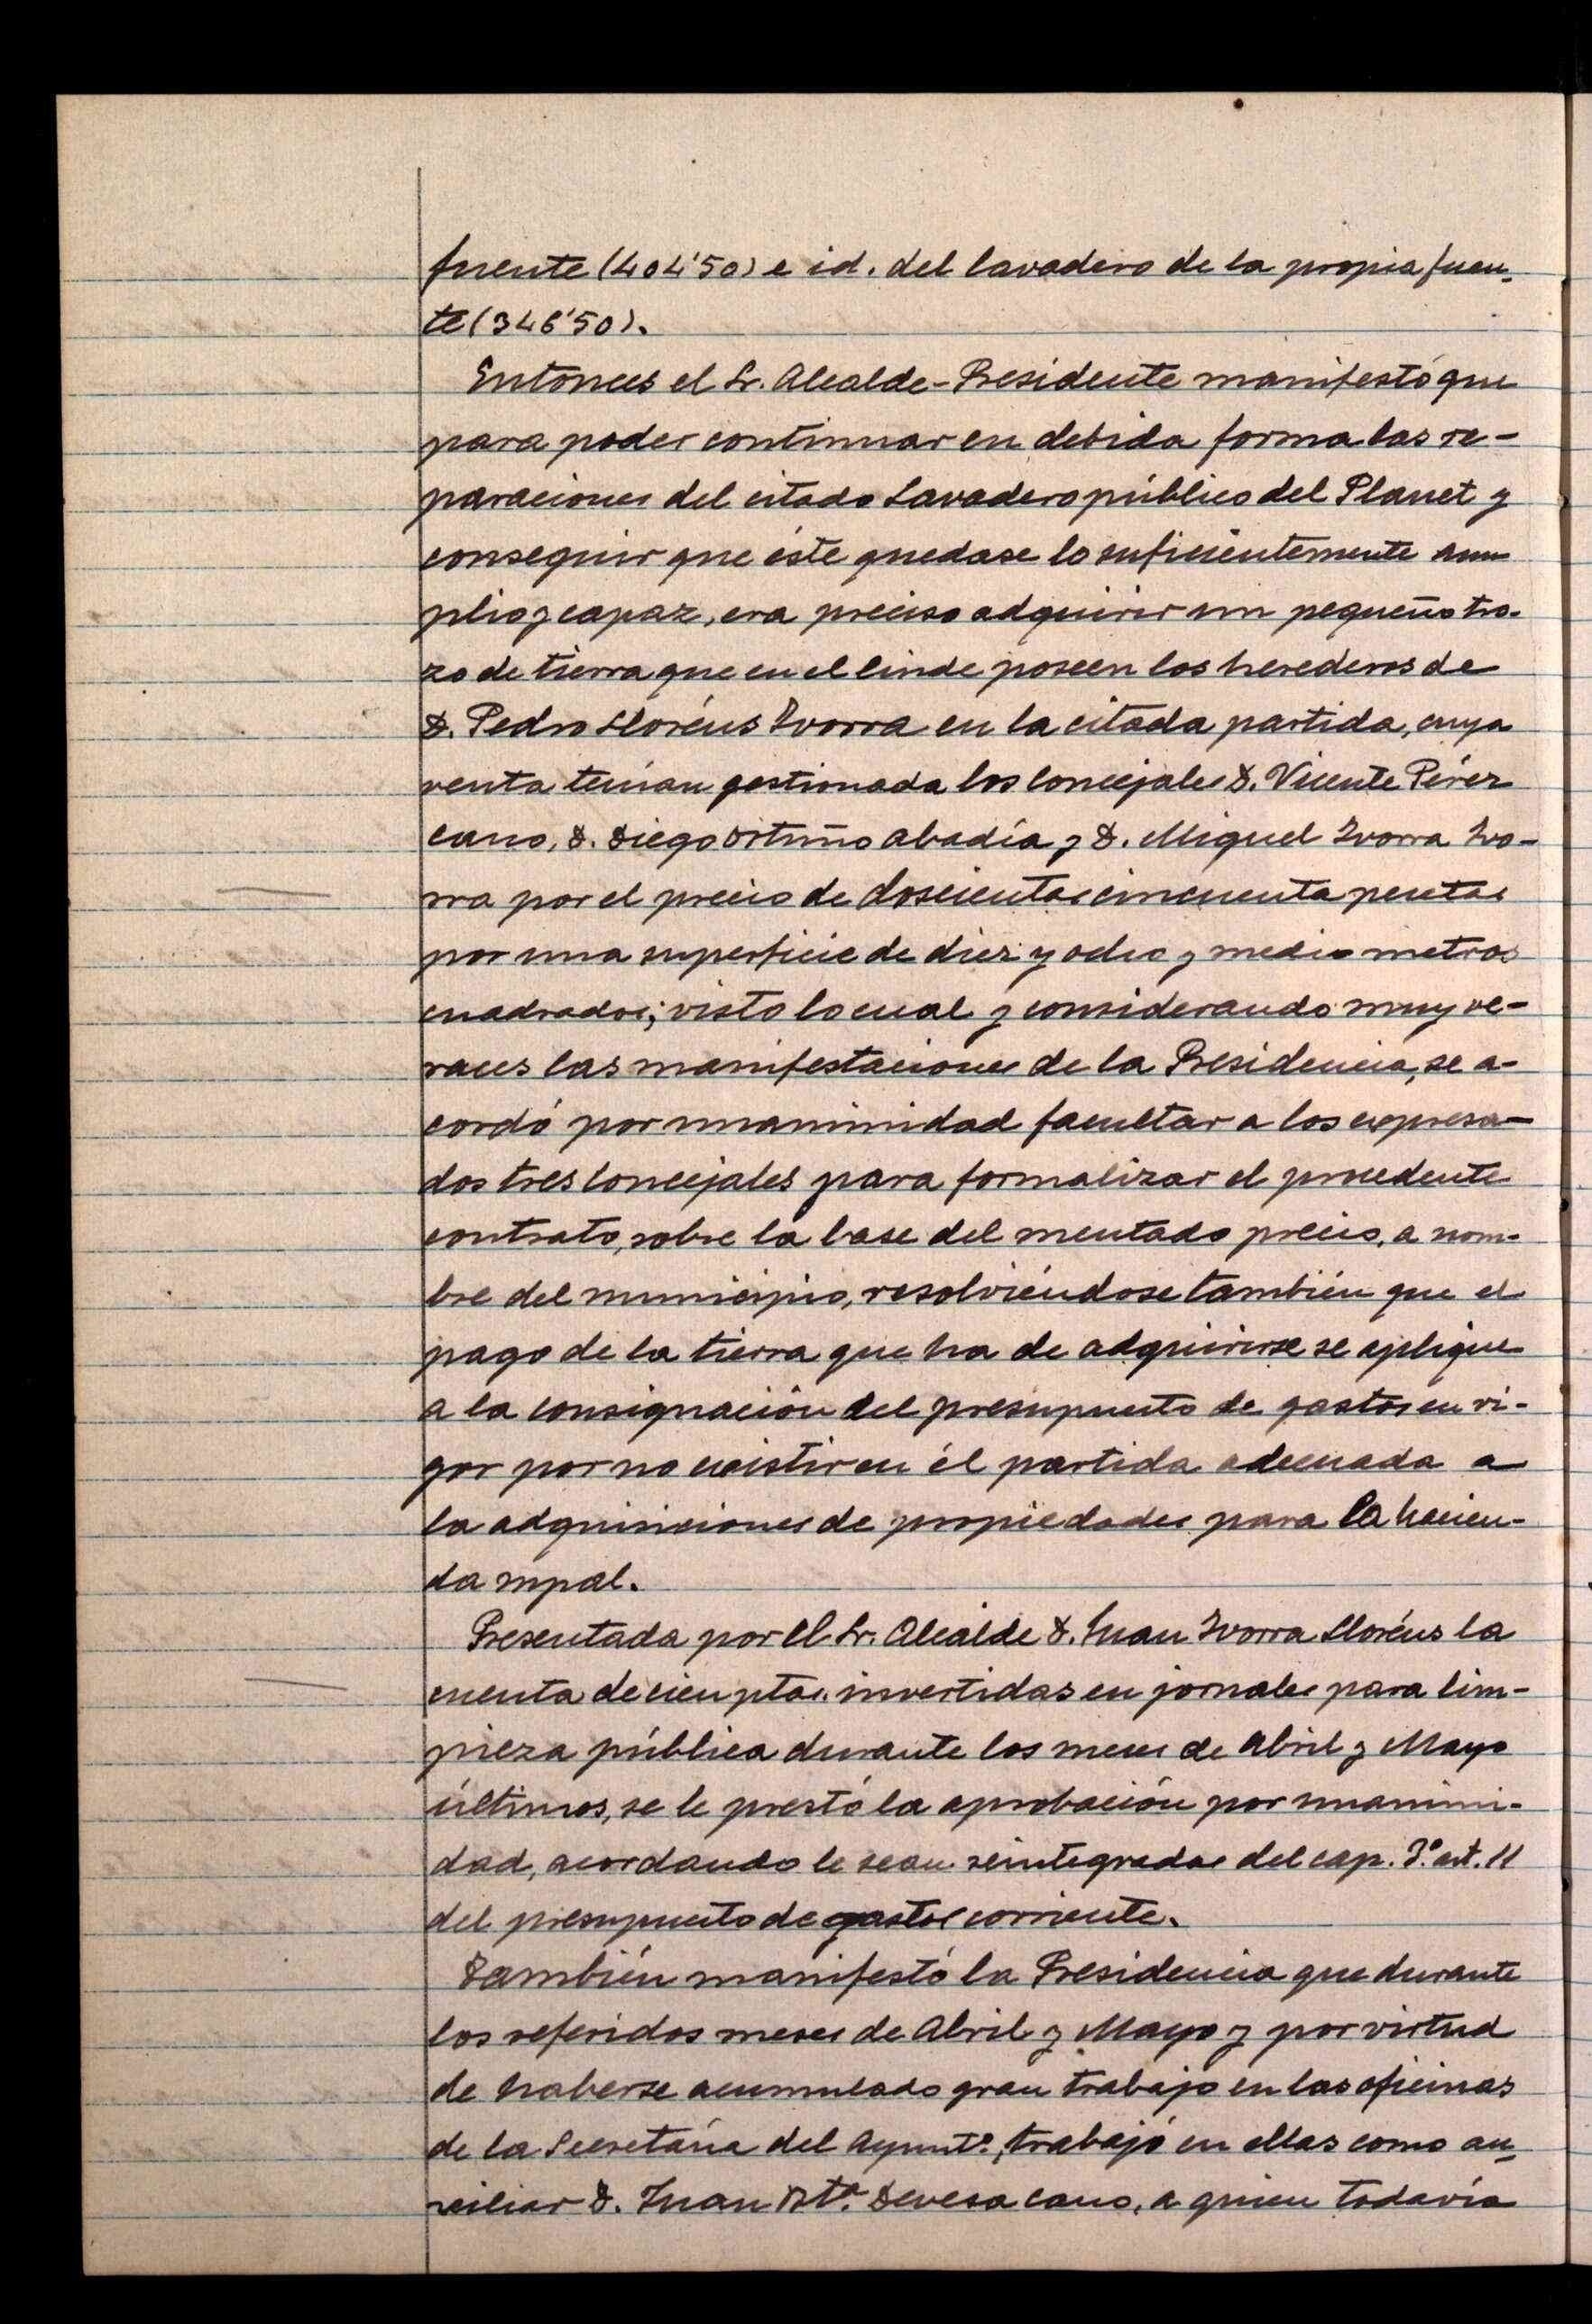 fuente (404'50) e id. del lavadero de la propia fuen-
te (346'50).
Entonces el Sr. Alcalde-Presidente manifestó que
para poder continuar en debida forma las re-
paraciones del citado Lavadero público del Planet y
conseguir que éste quedase lo suficientemente am
plio y capaz, era preciso adquirir un pequeño tro-
zo de tierra que en el linde poseen los herederos de
D. Pedro Lloréns Ivorra en la citada partida, cuya
venta tenían gestionada los Concejales D. Vicente Pérez
Cano, D. Diego Ortuño Abadía y D. Miguel Ivorra Ivo-
rra por el precio de doscientas cincuenta pesetas
por una superficie de diez y ocho y medio metros
cuadrados; visto lo cual y considerando muy ve-
races las manifestaciones de la Presidencia, se a-
cordó por unanimidad facultar a los expresa-
dos tres Concejales para formalizar el procedente
contrato, sobre la base del mentado precio, a nom-
bre del municipio, resolviéndose también que el
pago de la tierra que ha de adquirirse se aplique
a la consignación del presupuesto de gastos en vi-
gor por no existir en él partida adecuada a
la adquisiciones de propiedades para la hacien-
da mpal.
Presentada por el Sr. Alcalde D. Juan Ivorra Lloréns la
cuenta de cien ptas. invertidas en jornales para lim-
pieza pública durante los meses de Abril y Mayo
últimos, se le prestó la aprobación por unanimi-
dad, acordando le sean reintegradas del cap. 3.º art. 11
del presupuesto de gastos corriente.
También manifestó la Presidencia que durante
los referidos meses de Abril y Mayo y por virtud
de haberse acumulado gran trabajo en las oficinas
de la Secretaría del Ayunt.º, trabajó en ellas como au-
xiliar D. Juan Bta. Devesa Cano, a quien todavía